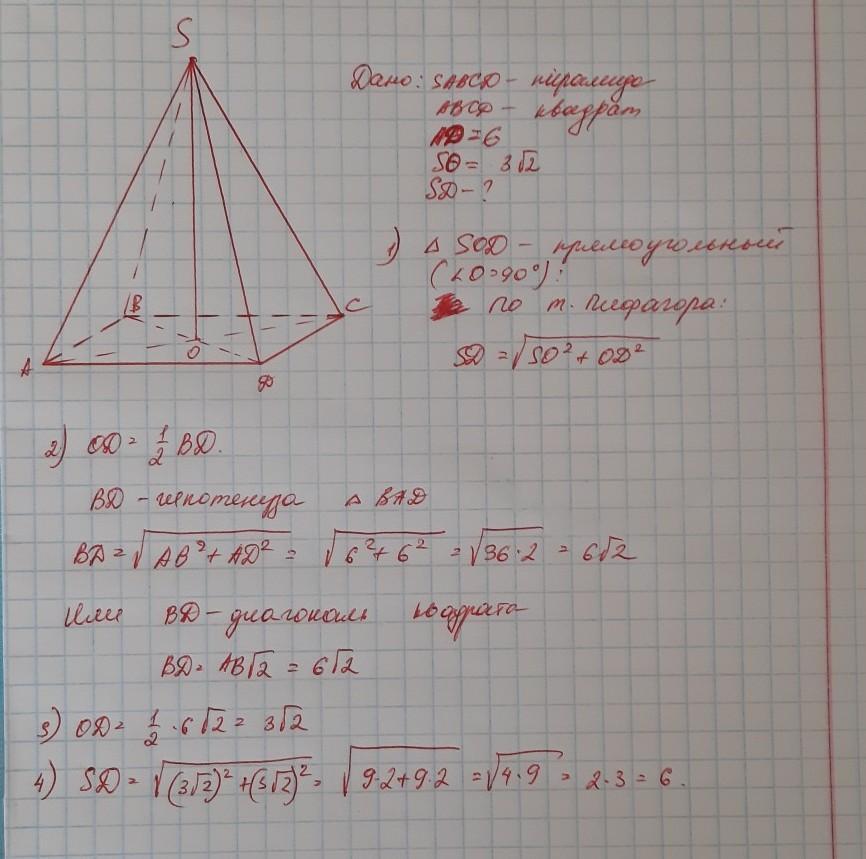 S
Дано: SABCD - пирамида
ABCD - квадрат
AD = 6
SO = 3√2
SD - ?
1) △ SOD - прямоугольный
(∠O=90°):
по т. Пифагора:
SD = √(SO² + OD²)
B
C
A
O
D
2) OD = 1/2 BD.
BD - гипотенуза △ BAD
BD = √(AB² + AD²) = √(6² + 6²) = √(36·2) = 6√2
Или BD - диагональ квадрата
BD = AB√2 = 6√2
3) OD = 1/2 · 6√2 = 3√2
4) SD = √((3√2)² + (3√2)²) = √(9·2+9·2) = √(4·9) = 2·3 = 6.